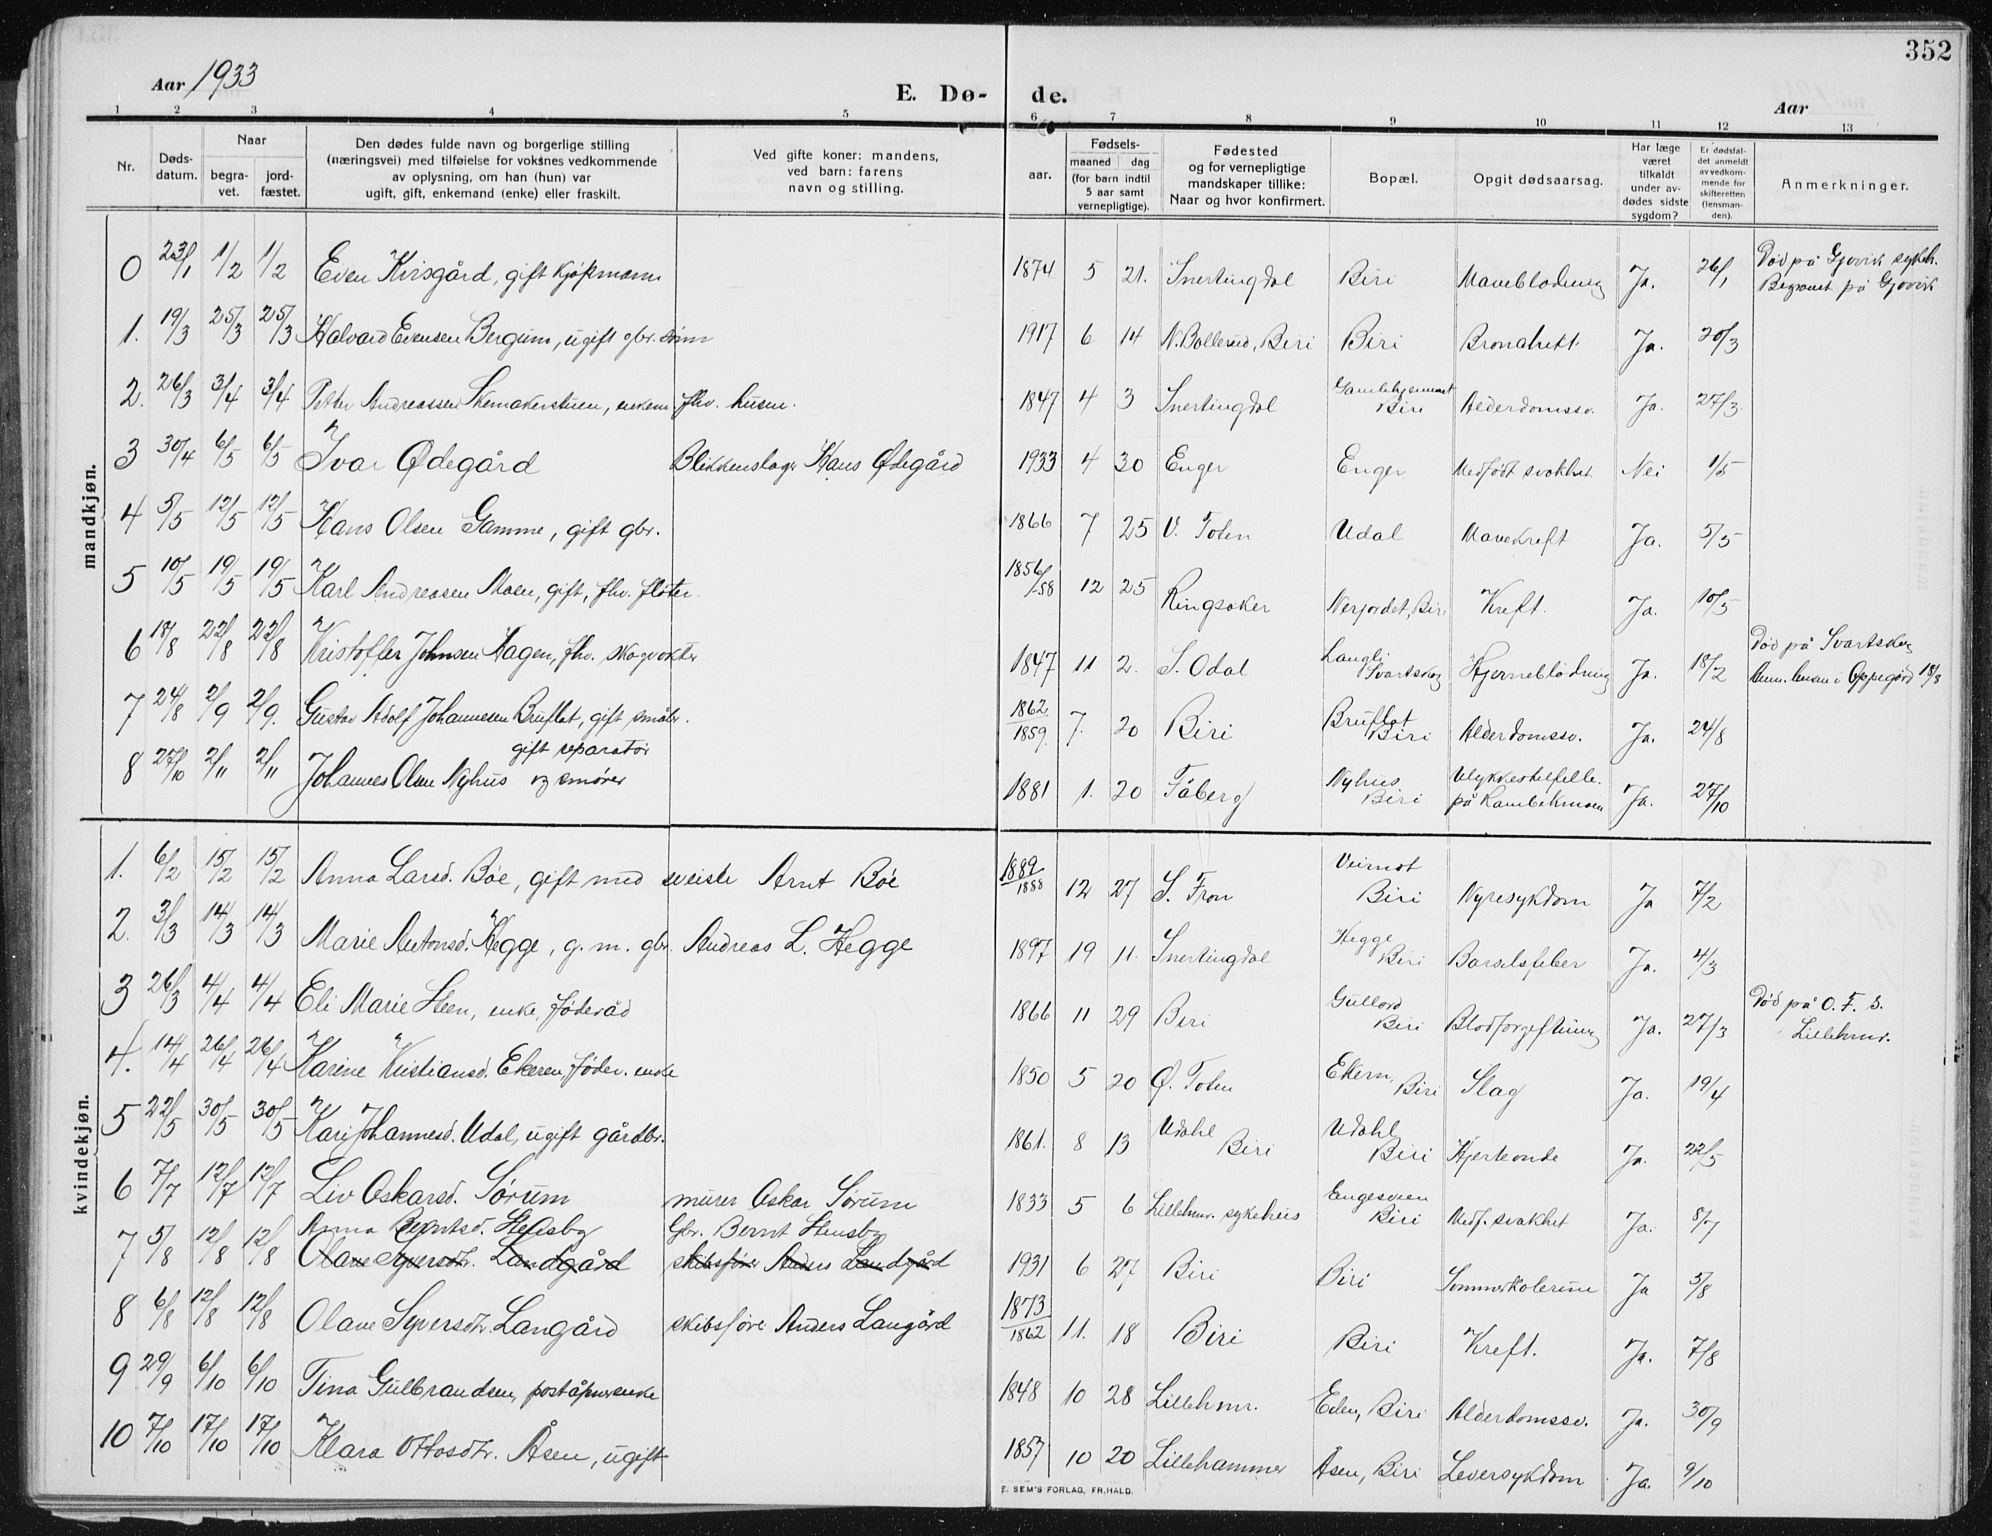 352
Aar 1933
E. Dø- de.
Aar
1 2 3 4 5 6 7 8 9 10 11 12 13
Nr.
Døds-
datum.
Naar
begra-
vet.
jord-
fæstet.
Den dødes fulde navn og borgerlige stilling
(næringsvei) med tilføielse for voksnes vedkommende
av oplysning, om han (hun) var
ugift, gift, enkemand (enke) eller fraskilt.
Ved gifte koner: mandens,
ved barn: farens
navn og stilling.
Fødsels-
aar.
maaned dag
(for barn indtil
5 aar samt
vernepligtige).
Fødested
og for vernepligtige
mandskaper tillike:
Naar og hvor konfirmert.
Bopæl.
Opgit dødsaarsag.
Har læge
været
tilkaldt
under av-
dødes sidste
sygdom?
Er dødsfal-
det anmeldt
av vedkom-
mende for
skifteretten
(lensman-
den).
Anmerkninger.
mandkjøn.
0 23/1 1/2 1/2 Even Kvisgård, gift kjøpmann 1874 5 21. Snertingdal Biri Maveblødning Ja. 26/1 Død på Gjøvik sykeh. Begravet på Gjøvik
1. 19/3 25/3 25/3 Halvard Evensen Bergum, ugift gbr. sønn 1917 6 14 N. Bollerud, Biri Biri Ja. 20/3
2. 26/3 3/4 3/4 Petter Andreassen Skomakerstuen, enkem. fhv. husm. 1847 4 3 Snertingdal Gamlehjemmet Biri Alderdomssv. Ja. 27/3
3 30/4 6/5 6/5 Ivar Ødegård Blikkenslager Hans Ødegård 1933 4 30 Enger Enger Medfødt svakhet Nei 1/5
4 5/5 12/5 12/5 Hans Olsen Gamme, gift gbr. 1866 7 25 V. Toten Udal Mavekreft Ja. 5/5
5 10/5 19/5 19/5 Karl Andreasen Moen, gift, fhv. fløter. 1856/58 12 25 Ringsaker Nerjordet, Biri Kreft. Ja. 10/5
6 18/8 22/8 22/8 Kristoffer Johnsen Hagen, fhv. skogvokter 1847 11 2. S. Odal Langli Svartskog Hjerneblødning Ja. 18/2 Død på Svartskog Oppegård 18/8
7 24/8 2/9 2/9. Gustav Adolf Johannesen Bruflat, gift småbr. 1862/1859. 7. 20 Biri Bruflat Biri Alderdomssv. Ja. 24/8
8 27/10 2/11 2/11 Johannes Olsen Nyhus gift reparatør og smører 1881 1. 20 Fåberg Nyhus Biri Ulykkestilfelle på Ja. 27/10
kvindekjøn.
1. 6/2 15/2 15/2 Anna Larsd. Bøe, gift med Arnt Bøe 1889/1888 12 27 S. Fron Veimot Biri Nyresykdom Ja 7/2
2. 3/3 14/3 14/3 Marie Antonsd. Hegge, g. m. gbr. Andreas L. Hegge 1897 19 11. Snertingdal Hegge Biri Barselsfeber Ja. 4/3
3 26/3 4/4 4/4 Eli Marie Steen, enke, føderåd 1866 11 29 Biri Gullord Biri Blodforgiftning Ja. 27/3 Død på O. F. S. Lillehmr.
4. 14/4 26/4 26/4 Karine Kristiansd. Ekeren, føder. enke 1850 5 20 Ø. Toten Ekern, Biri Slag Ja. 19/4
5 22/5 30/5 30/5 Kari Johannesd. Udal, ugift gårdbr. 1861. 8 13 Udahl Biri Udahl Biri Hjerteonde Ja. 22/5
6 7/7 12/7 12/7 Liv Oskarsd. Sørum murer Oskar Sørum 1833 5 6 Lillehmr. sykehus Engesveen Biri Medf. svakhet Ja. 8/7
7 5/8 12/8 12/8 Anna Berntsd. Stensby Gbr. Bernt Stensby 1931 6 27 Biri Biri Sommerkolerine Ja 5/8
Olave Syversdtr. Landgård skibsfører Anders Landgård
8 6/8 12/8 12/8 Olave Syversdtr. Langård skibsføre Anders Langård 1873/1862 11. 18 Biri Biri Kreft. Ja. 7/8
9 29/9 6/10 6/10 Tina Gulbrandsen, poståpnerenke 1848 10 28 Lillehmr. Eden, Biri Alderdomssv. Ja. 30/9
10 7/10 17/10 17/10 Klara Ottosdtr. Åsen, ugift 1857 10 20 Lillehammer Åsen, Biri Leversykdom Ja. 9/10
E. SEM'S FORLAG, FR.HALD.